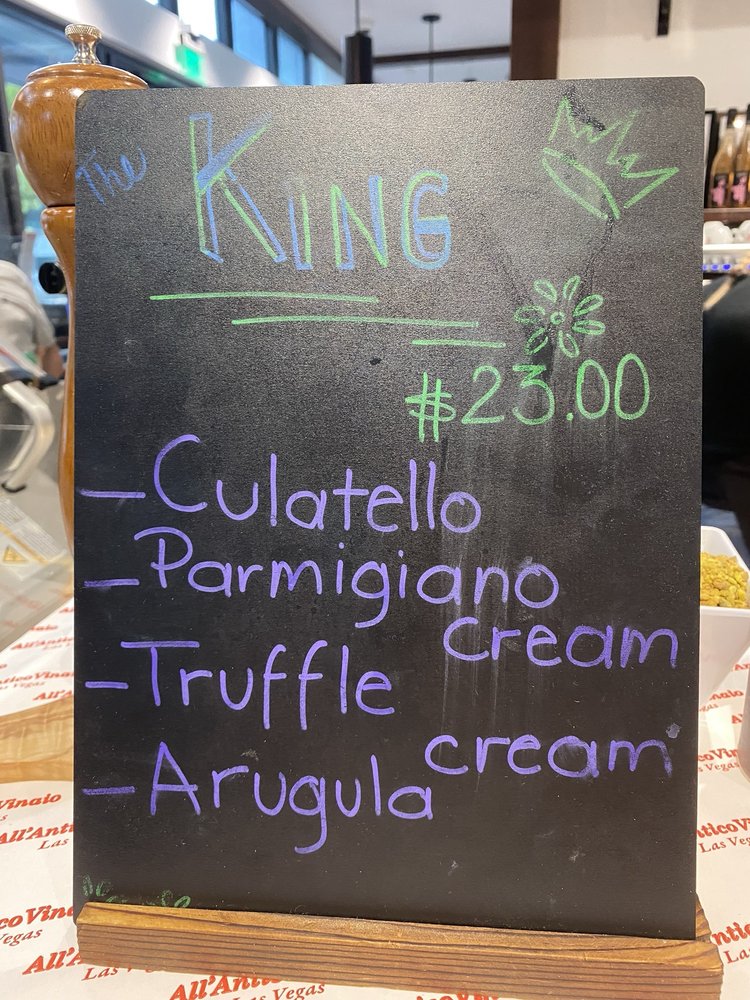 The KING
$23.00
- Culatello
- Parmigiano
cream
- Truffle
cream
- Arugula
Vinaio
All'Antico
Las Vegas
ticoVinaio
Las Vegas
co Vinaio
Vegas
All'Antico
Las Vegas
All'Antico
Las Vegas